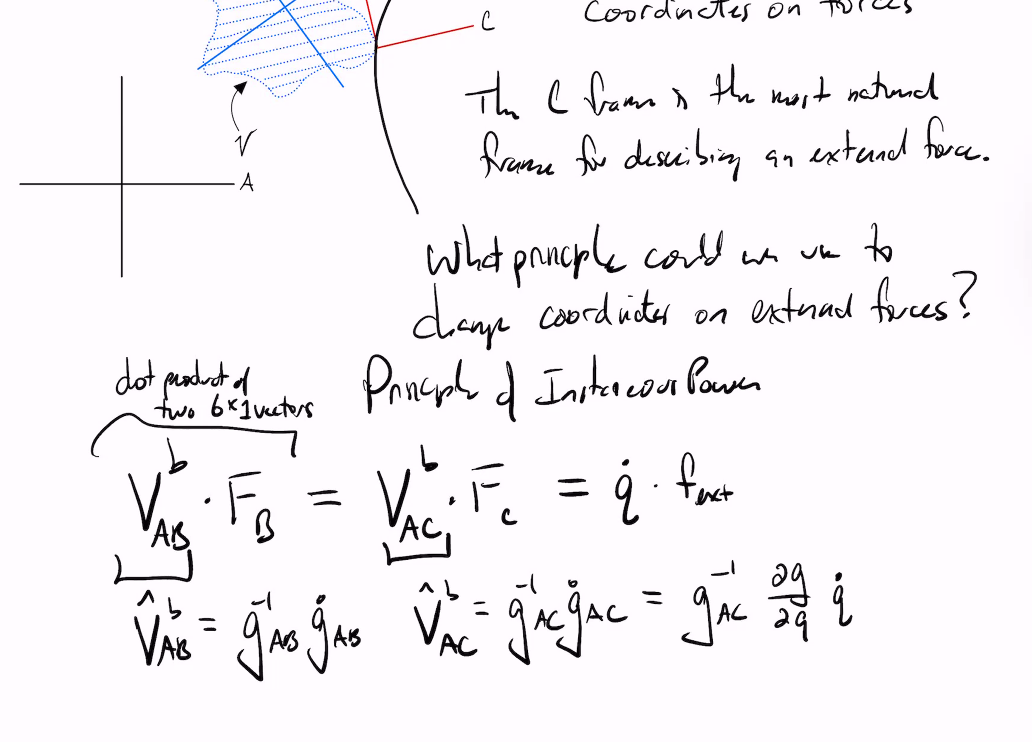 Coordinates on forces
C
The C frame is the most natural
frame for describing an external force.
V
A
What principle could we use to
change coordinates on external forces?
dot product of
two 6×1 vectors
Principle of Power
V^b_AB · F_B = V^b_AC · F_C = q̇ · f_ext
V̂^b_AB = g^-1_AB ġ_AB
V̂^b_AC = g^-1_AC ġ_AC = g^-1_AC ∂g/∂q q̇